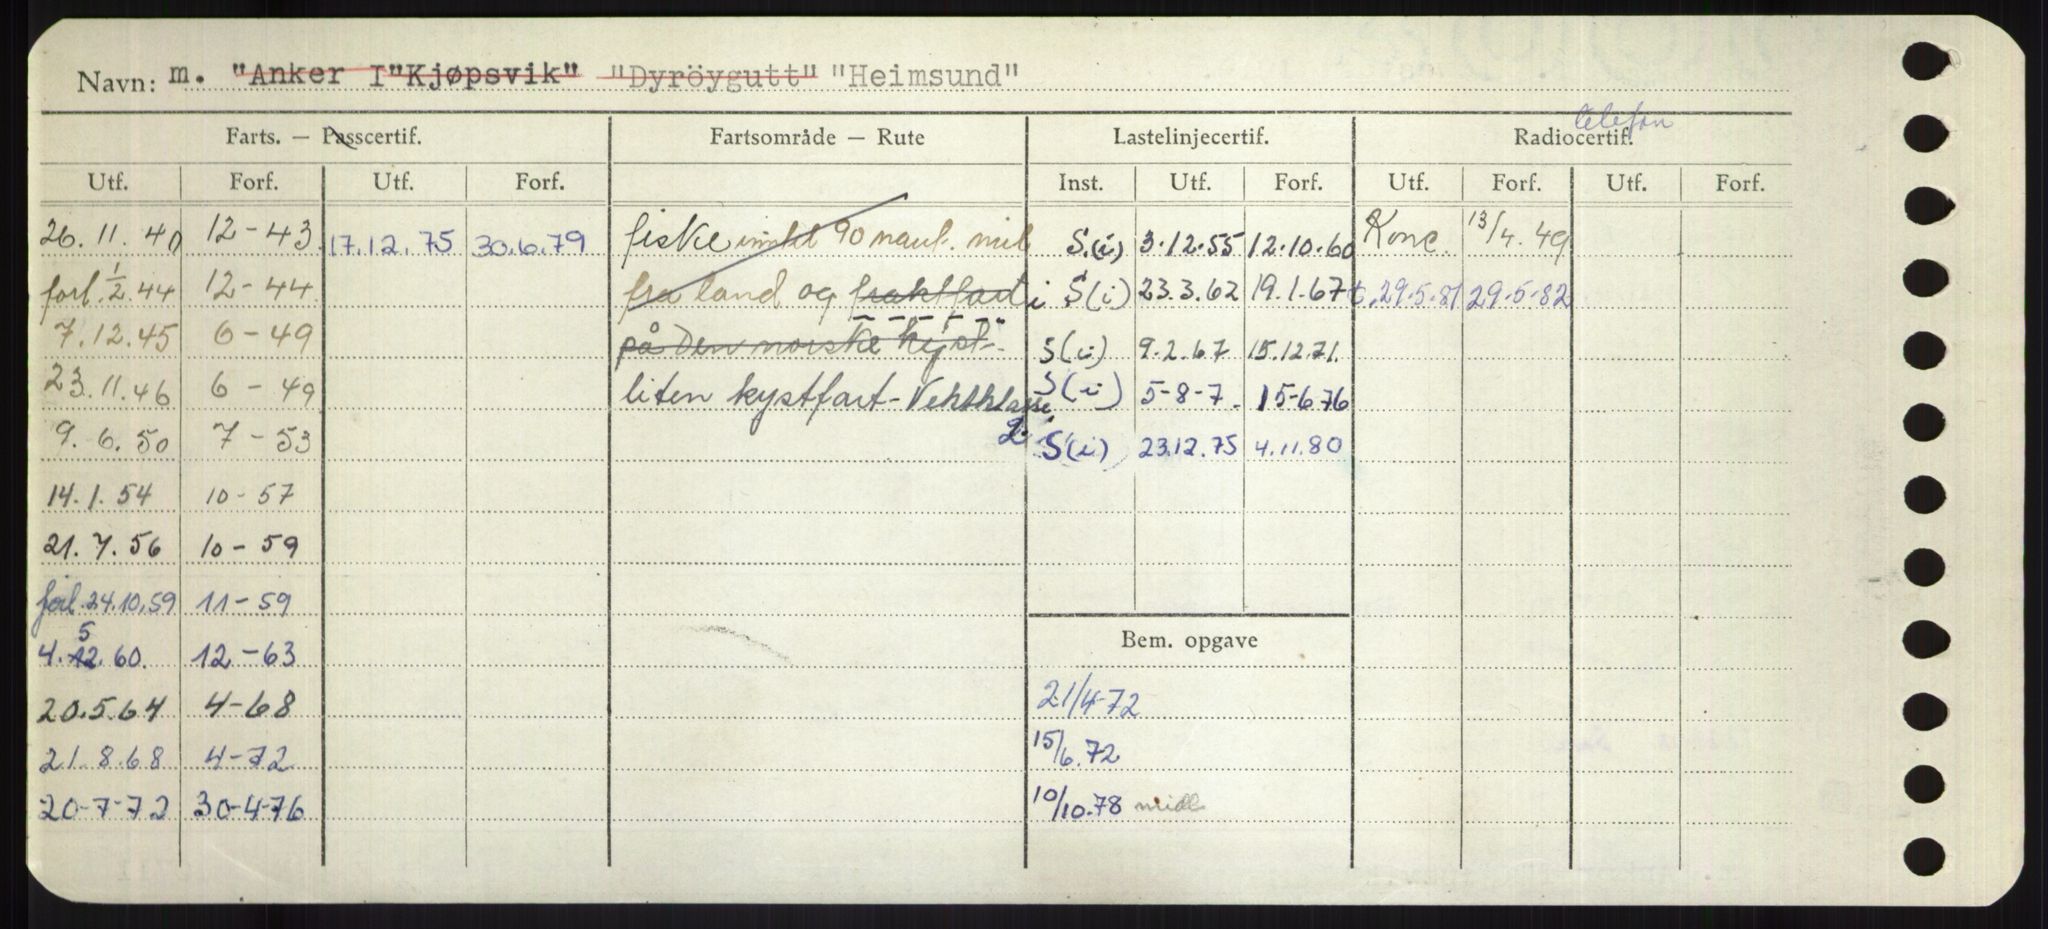 Navn: m. "Anker I" "Kjøpsvik" "Dyröygutt" "Heimsund"
Farts. — Passcertif. Fartsområde — Rute Lastelinjecertif. Radiocertif. telefon
Utf. Forf. Utf. Forf. Inst. Utf. Forf. Utf. Forf. Utf. Forf.
26.11.40 12-43 17.12.75 30.6.79 fiske inntil 90 naut. mil S.(i) 3.12.55 12.10.60 Konc. 13/4.49
forl. 1/2.44 12-44 fra land og fraktfart i S(i) 23.3.62 19.1.67 t. 29.5.81 29.5.82
7.12.45 6-49 på den norske kyst S(i) 9.2.67 15.12.71.
23.11.46 6-49 liten kystfart - Vektklasse S(i) 5-8-7 15-6.76
9.6.50 7-53 2. S(i) 23.12.75 4.11.80
14.1.54 10-57
21.7.56 10-59
forl. 24.10.59 11-59
4.5.60. 12-63 Bem. opgave
20.5.64 4-68 21/4-72
21.8.68 4-72 15/6.72
20-7-72 30-4-76 10/10.78 midl